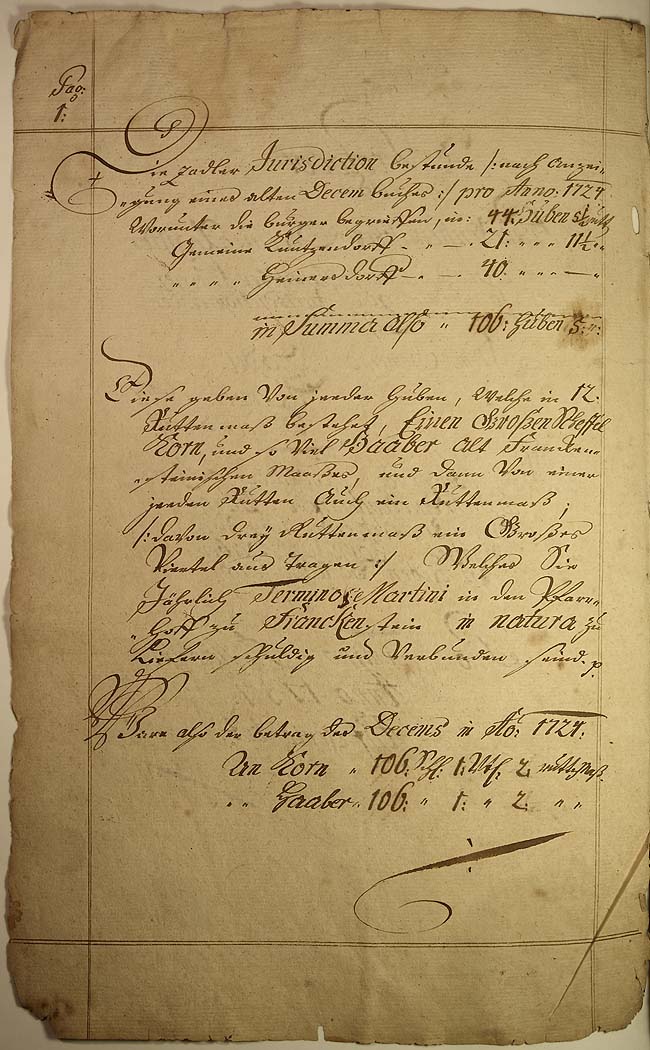 Pag:
1:
Die Zadler Jurisdiction bestünde /: nach Anzei-
-gung eines alten Decem buches :/ pro Anno: 1724
Worunter die burger begrieffen, in: 44: Huben 5½ rutt
Gemeine Kuntzendorff - " - 21: " " " 11½ "
" " " " Heinersdorff - " - 40: " " " - "
in Summa also " 106: Huben 5: "
Diese geben Von jeeder Huben, Welche in 12.
Rutten maß bestehet, Einen Großen Scheffel
Korn, und so Viel Haaber Alt Francken-
-steinischen Maaßes, und dann Von einer
jeeden Rutten Auch ein Ruttenmaß;
/: davon drey Ruttenmaß ein Großes
Viertel aus tragen :/ Welches Sie
Jährlich Termino S. Martini in den Pfarr-
-Hoff zu Franckenstein in natura zu
Liefern schuldig und Verbunden seind. p.
Wäre also der betrag des Decems in Ao: 1724.
An Korn " 106: Schl: 1: Vtl: 2. ruttmaß.
" " Haaber " 106: " 1: " 2. " "